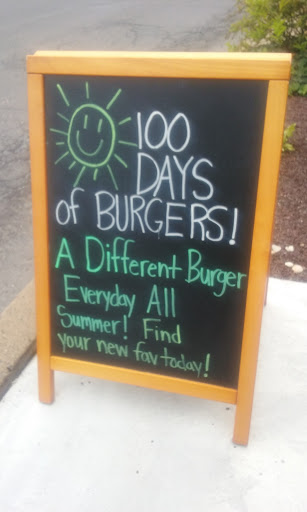 100
DAYS
of BURGERS!
A Different Burger
Everyday All
Summer! Find
your new fav today!